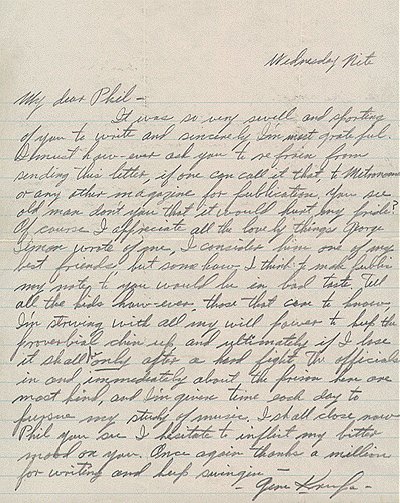 Wednesday Nite
My dear Phil -
It was so very swell and sporting
of you to write and sincerely I'm most grateful.
I must how-ever ask you to refrain from
sending this letter, if one can call it that to Metronome
or any other magazine for publication, you see
old man don't you that it would hurt my pride?
Of course I appreciate all the lovely things George
Simon wrote of me, I consider him one of my
best friends, but some how, I think to make public
my note to you would be in bad taste. Tell
all the kids how-ever, those that care to know,
I'm striving with all my will power to keep the
proverbial chin up and ultimately if I lose
it shall only after a hard fight. The officials
in and immediately about the prison here are
most kind, and I'm given time each day to
pursue my study of music. I shall close now
Phil you see I hesitate to inflict my bitter
mood on you. Once again thanks a million
for writing and keep swingin
- Gene Krupa -